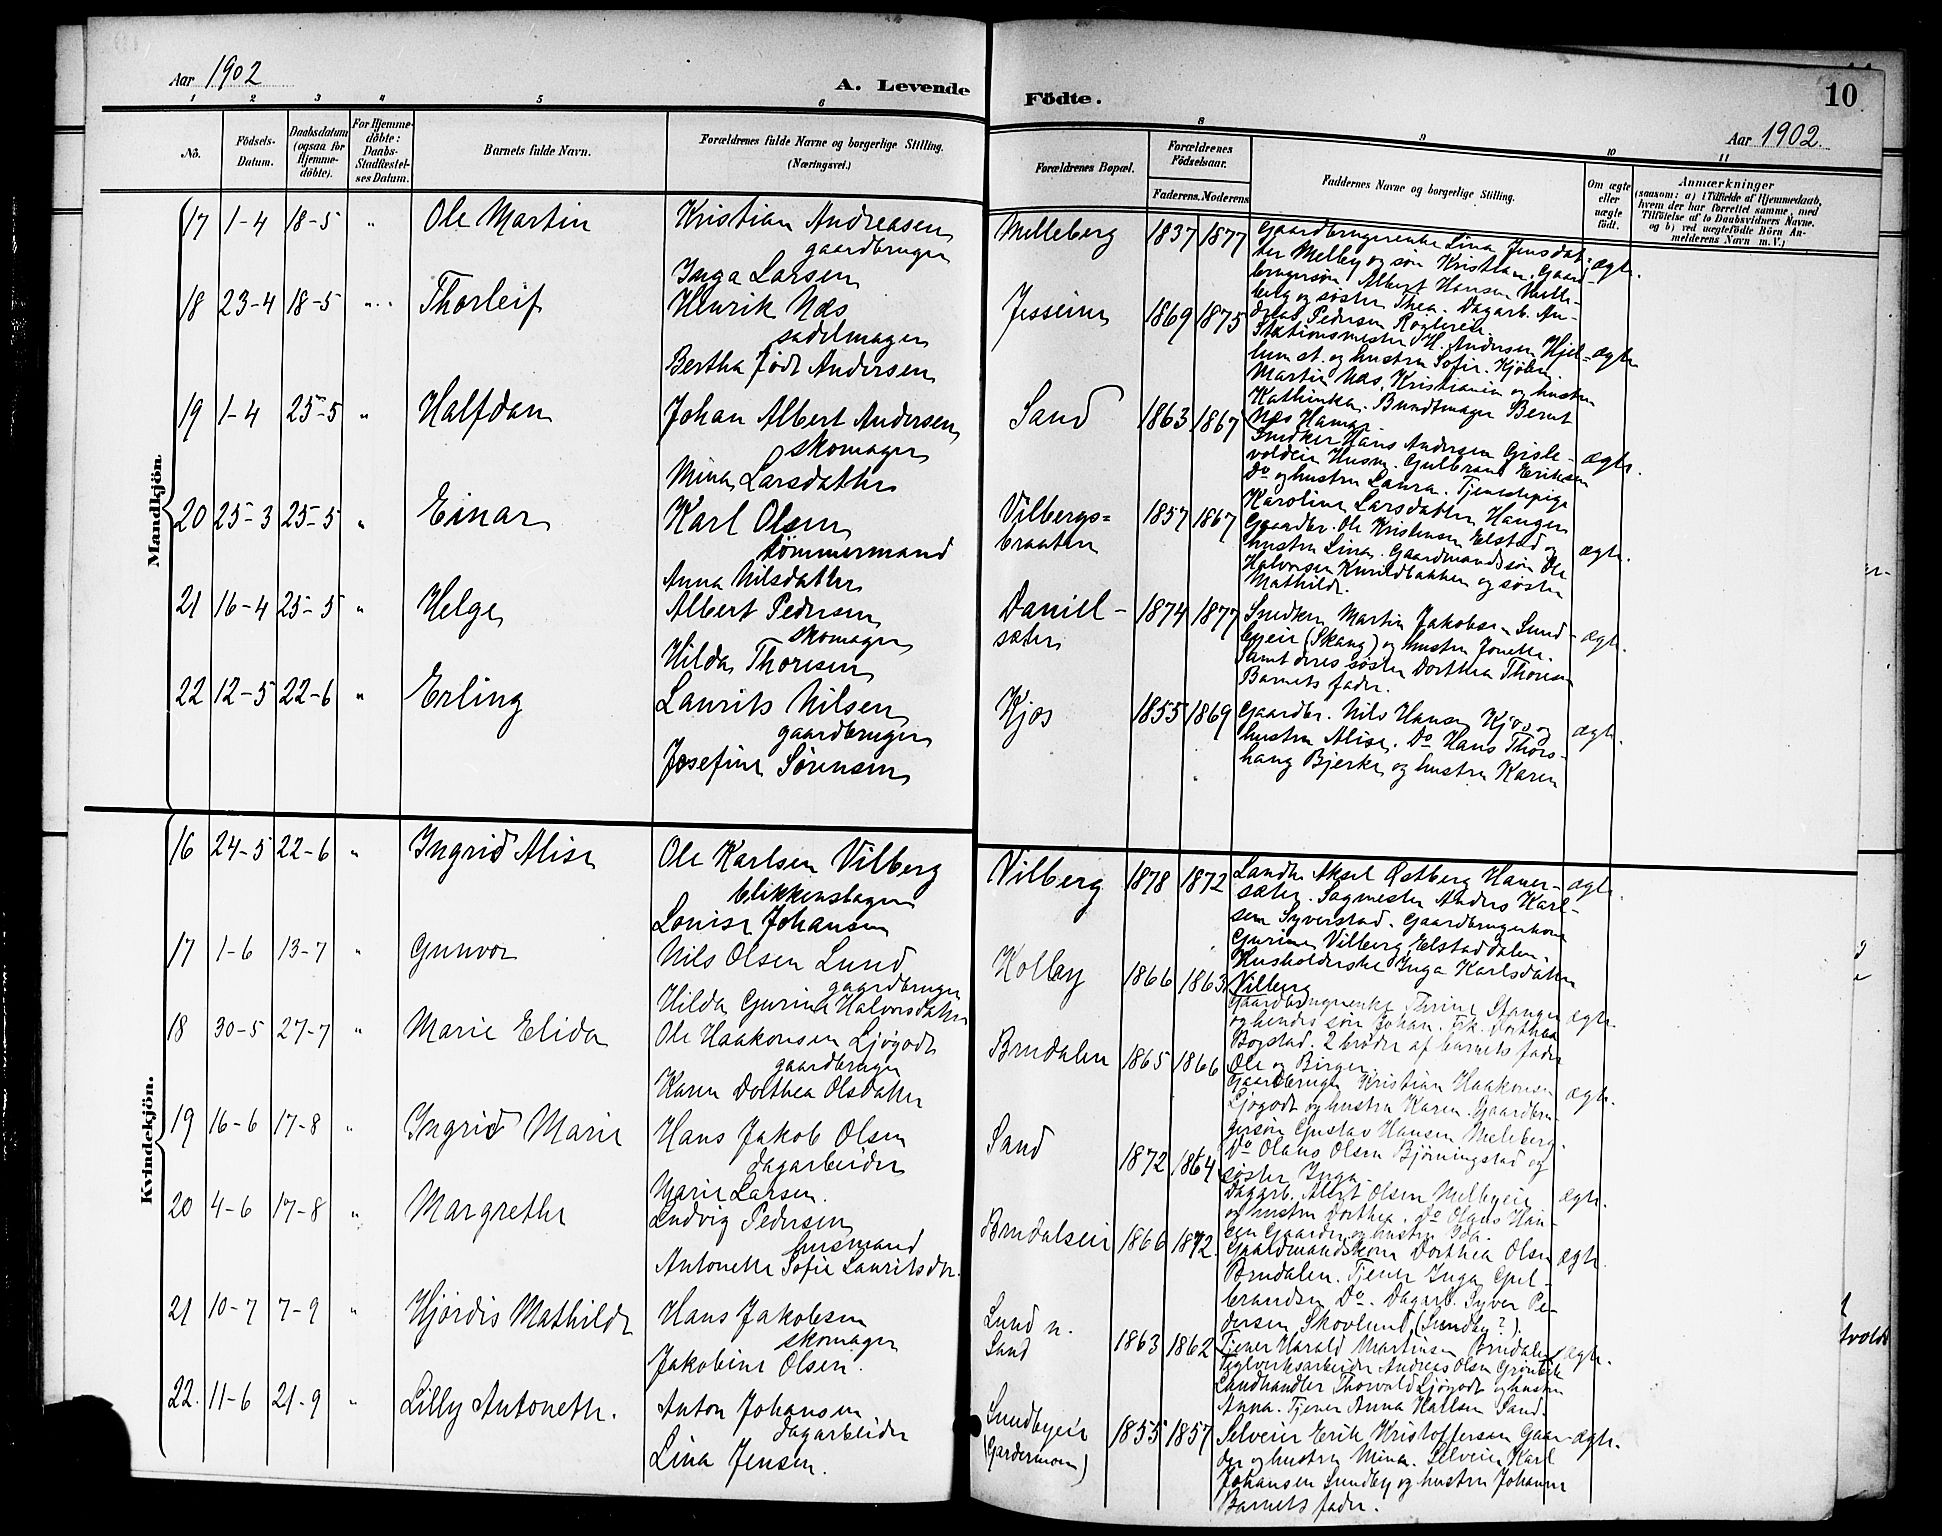 Aar 1902
A. Levende
Födte.
10
Aar 1902.
1 2 3 4 5 6 8 9 10 11
Nô.
Födsels-
Datum.
Daabsdatum
(ogsaa for
Hjemme-
döbte).
For Hjemme-
döbte:
Daabs-
Stadfæstel-
ses Datum.
Barnets fulde Navn.
Forældrenes fulde Navne og borgerlige Stilling.
(Næringsvei.)
Forældrenes Bopæl.
Forældrenes
Födselsaar.
Faderens. Moderens
Faddernes Navne og borgerlige Stilling.
Om ægte
eller
uægte
födt.
Anmærkninger
(saasom: a) i Tilfælde af Hjemmedaab,
hvem der har forrettet samme, med
Tilföielse af to Daabsvidners Navne.
og b) ved uægtefödte Börn An-
melderens Navn m. V.)
Mandkjön.
17 1-4 18-5 " Ole Martin Kristian Andreasen
gaardbruger
Inga Larsen
Melleberg 1837 1877 Gaardbrugerenke Lina Jensdat-
ter Melby og søn Kristian. Gaard-
brugersøn Albert Hansen Melle-
berg og søster Thea. Dagarb. An-
dreas Pedersen
ægte.
18 23-4 18-5 " Thorleif Henrik Næs
sadelmager
Bertha født Andersen
Jesseim 1869 1875 Stationsmester H. Andersen Hjel-
lum st. og hustru Sofie. Kjøbm.
Martin Næs, Kristiania og hustru
Kathinka. Bundtmager Bernt
Næs Hamar.
ægte
19 1-4 25-5 " Halfdan Johan Albert Andersen
skomager
Mina Larsdatter
Sand 1863 1867 Snedker Hans Andersen Gisle-
voldeie Husm. Gulbrand Eriksen
Do og hustru Laura. Tjenestepige
Karoline Larsdatter Haugen
ægte.
20 25-3 25-5 " Einar Karl Olsen
tømmermand
Anna Nilsdatter
Vilbergs=
braaten 1857 1867 Gaardbr. Ole Kristensen Elstad og
hustru Lina. Gaardmandssøn Ole
Halvorsen og søster
Mathilde.
ægte.
21 16-4 25-5 " Helge Albert Pedersen
skomager
Hilda Thoresen
Daniel-
sæter 1874 1877 Snedker Martin Jakobsen Sund-
byeie (Skaug) og hustru Jonette.
Samt deres søster Dorthea Thoresen
Barnets fader.
ægte.
22 12-5 22-6 " Erling Laurits Nilsen
gaardbruger
Josefine Sørensen
Kjos 1855 1869 Gaardbr. Nils Hansen Kjos og
hustru Alise. Do Hans Thors-
haug Bjerke og hustru Karen
ægte.
Kvindekjön.
16 24-5 22-6 " Ingrid Alise Ole Karlsen Vilberg
blikkenslager
Louise Johansen
Vilberg 1878 1872 Landh. Aksel Østberg Haner-
sæter. Sagmester Anders Karl-
sen Syverstad. Gaardbrugerkone
Gurine Vilberg Elstaddalen.
Husholderske Inga Karlsdatter
Vilberg
ægte.
17 1-6 13-7 " Gunvor Nils Olsen Lund
gaardbruger
Hilda Gurine Halvorsdatter
Kolby 1866 1863 Gaardbrugerenke Thrine Stanger
og hendes søn Johan. Frk. Dorthea
Bogstad. 2 brødre af barnets fader
Ole og Birger.
ægte.
18 30-5 27-7 " Marie Elida Ole Haakonsen Ljøgodt
gaardbruger
Karen Dorthea Olsdatter
Brudalen 1865 1866 Gaardbruger Kristian Haakonsen
Ljøgodt og hustru Karen. Gaardbru-
gersøn Gustav Hansen Meleberg.
Do Olaus Olsen Bjørningstad og
søster Inga.
ægte.
19 16-6 17-8 " Ingrid Marie Hans Jakob Olsen
dagarbeider
Marie Larsen.
Sand 1872 1864 Dagarb. Albert Olsen Melbyeie
og hustru Dorthea. Do Olaus Han-
sen Gaarder og hustru Ida.
ægte.
20 4-6 17-8 " Margrethe Ludvig Pedersen
husmand
Antonette Sofie Lauritsdtr.
Brudalseie 1866 1872. Gaardmandskone Dorthea Olsen
Brudalen. Tjener Inga Gul-
brandsen Do. Dagarb. Syver Pe-
dersen Skovlund (Sundby?).
Tjener Harald Martinsen Brudalen
ægte
21 10-7 7-9 " Hjørdis Mathilde Hans Jakobsen
skomager
Jakobine Olsen.
Lund n.
Sand 1863 1862 Teglverksarbeider Andreas Olsen Grønbæk
Landhandler Thorvald Ljøgodt og hustru
Anna. Tjener Anna Hallsen Sand.
ægte.
22. 11-6 21-9 " Lilly Antonette. Anton Johansen
dagarbeider
Lina Jensen.
Sundbyeie
(Gardermoen) 1855 1857 Selveier Erik Kristoffersen Gaar-
der og hustru Mina. Selveier Karl
Johansen Sundby og hustru Johanne
Barnets fader.
ægte.